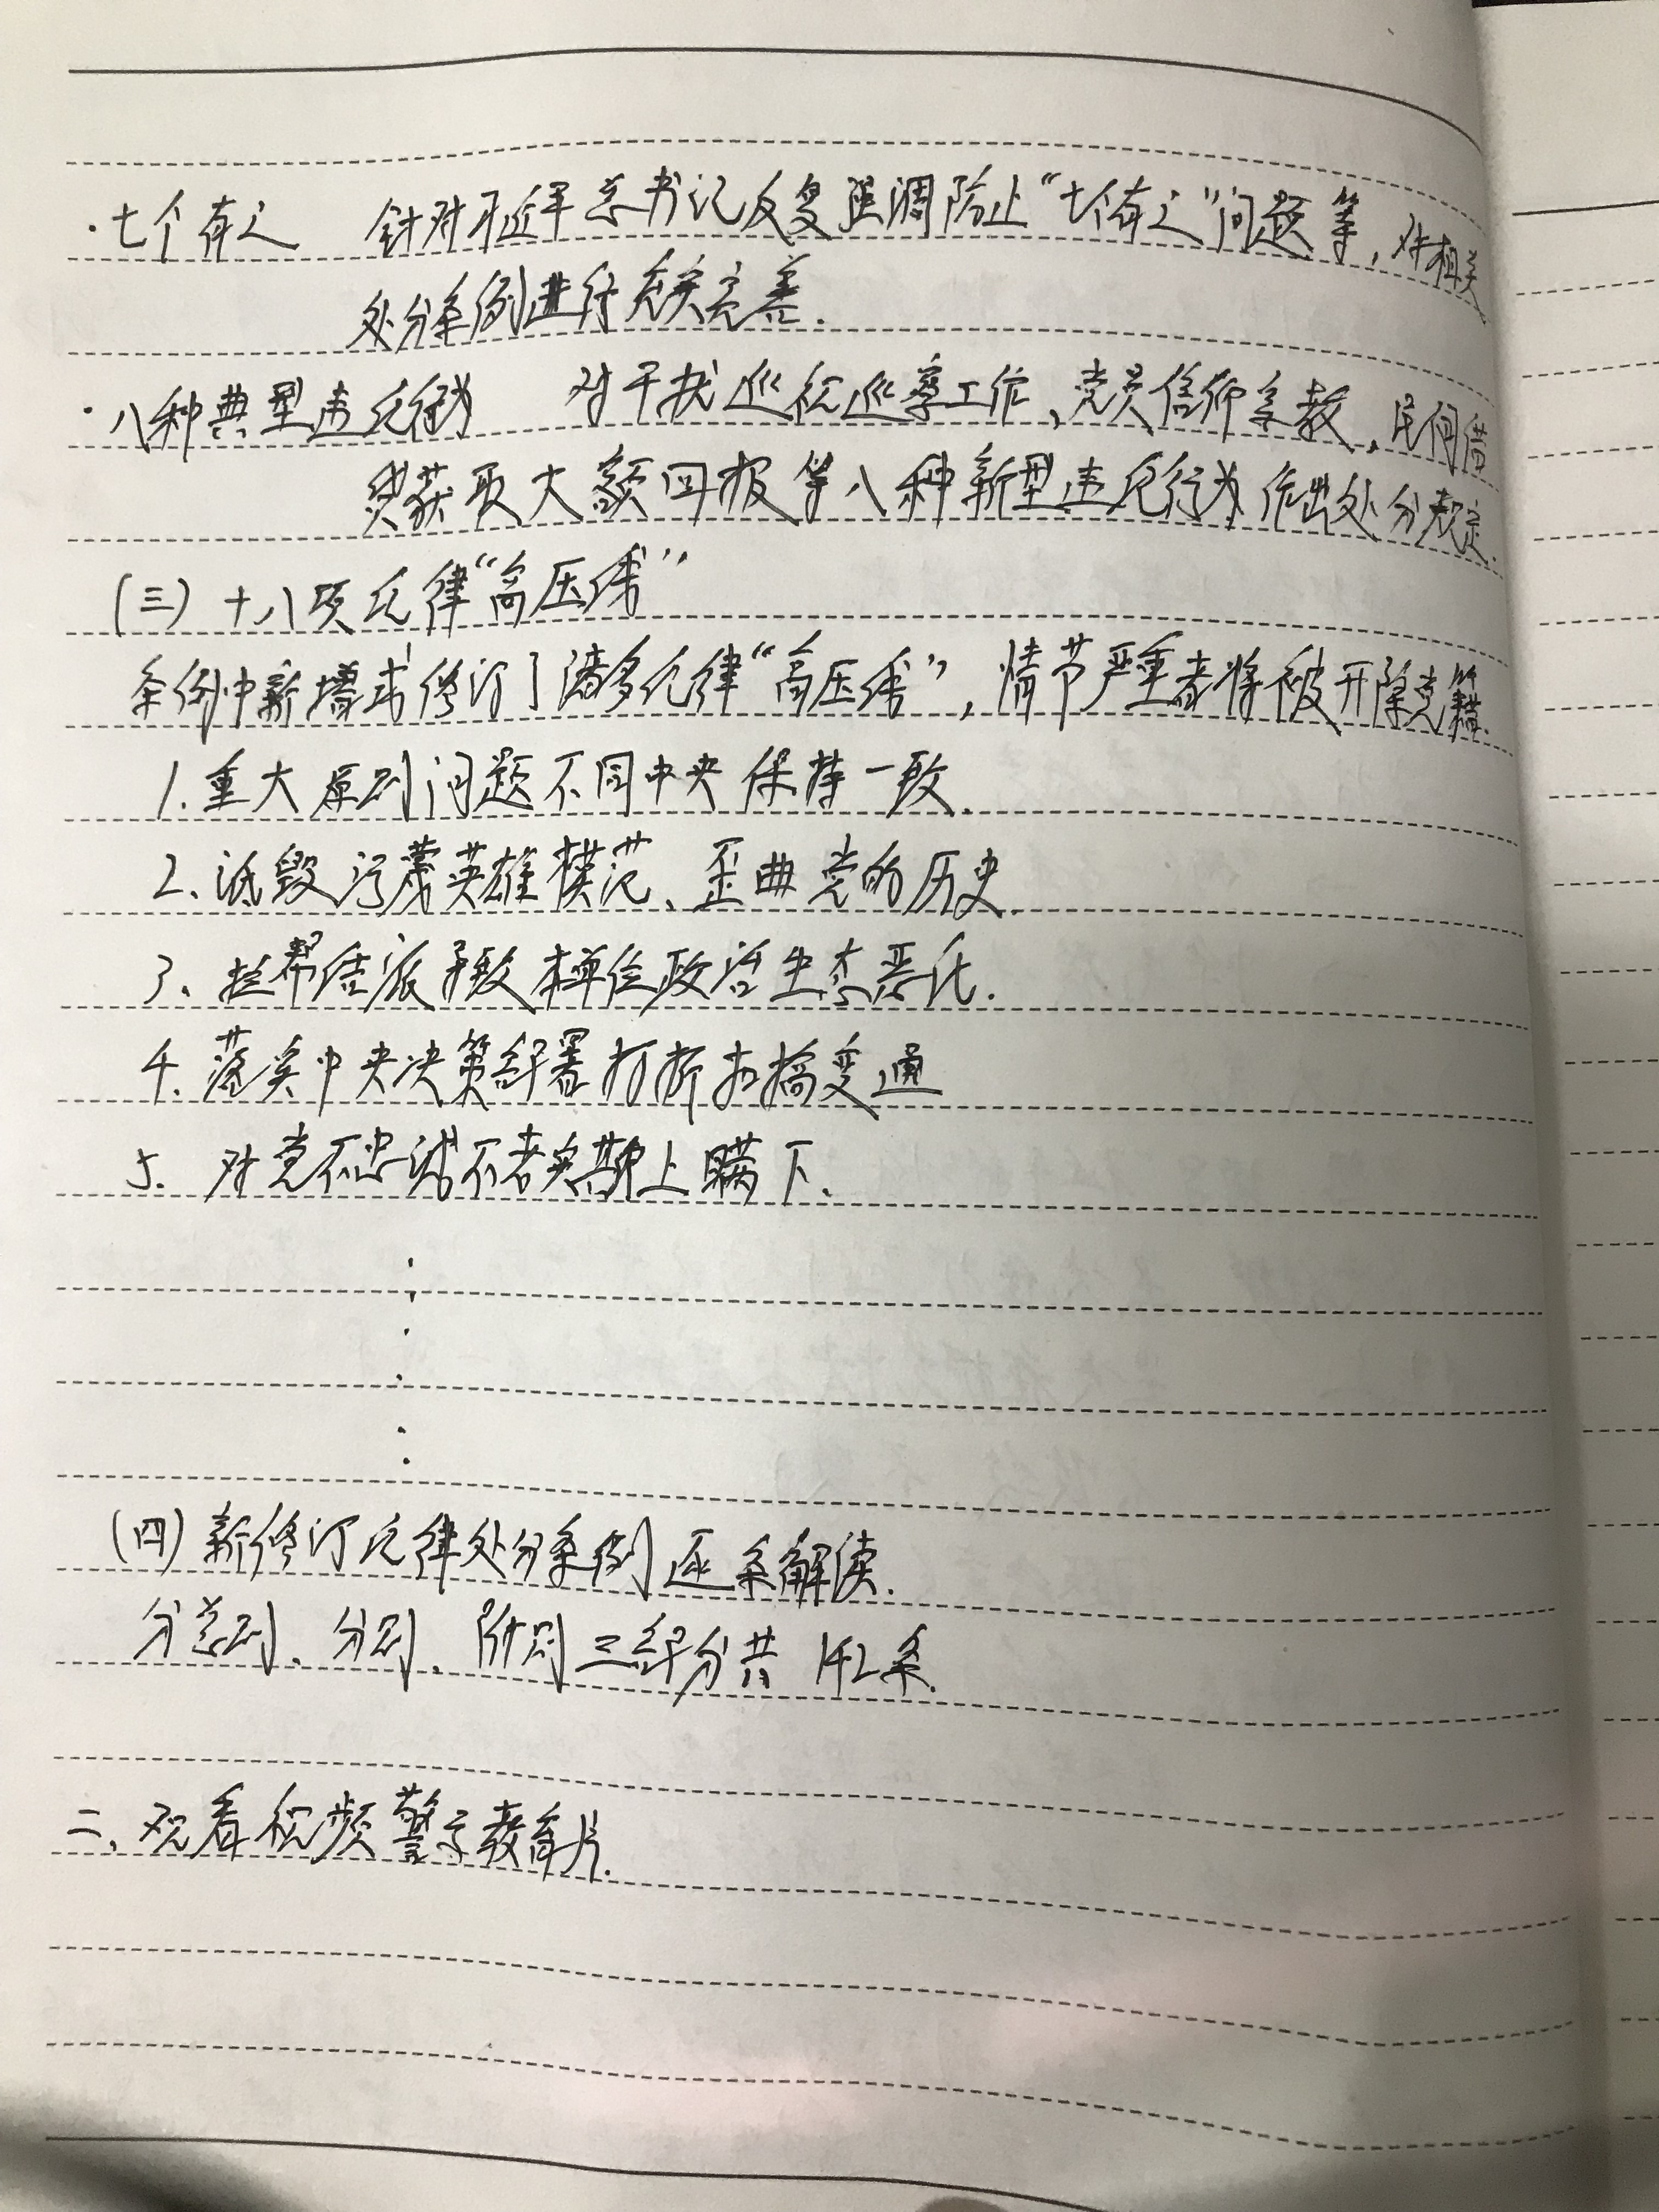 ·七个有之 针对习近平总书记反复强调防止“七个有之”问题等,对相关
处分条例进行充实完善.
·八种典型违纪行为 对干扰巡视巡察工作、党员信仰宗教,民间借
贷获取大额回报等八种新型违纪行为作出处分规定.
(三)十八项纪律“高压线”
条例中新增或修订了诸多纪律“高压线”,情节严重者将被开除党籍.
1.重大原则问题不同中央保持一致.
2、诋毁污蔑英雄模范、歪曲党的历史.
3、拉帮结派导致本单位政治生态恶化.
4.落实中央决策部署打折扣搞变通
5.对党不忠诚不老实欺上瞒下.
(四)新修订纪律处分条例逐条解读.
分总则、分则、附则三部分共142条.
二、观看视频警示教育片.